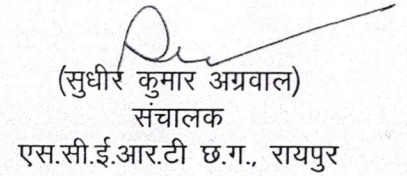 (सुधीर कुमार अग्रवाल)
संचालक
एस.सी.ई.आर.टी छ.ग., रायपुर